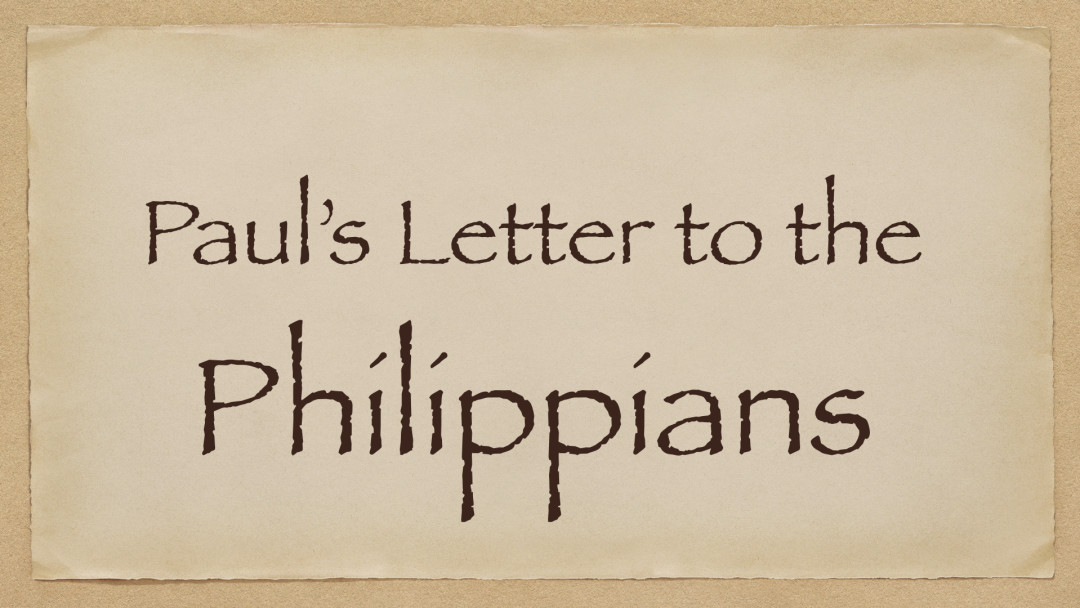 Paul’s Letter to the
Philippians